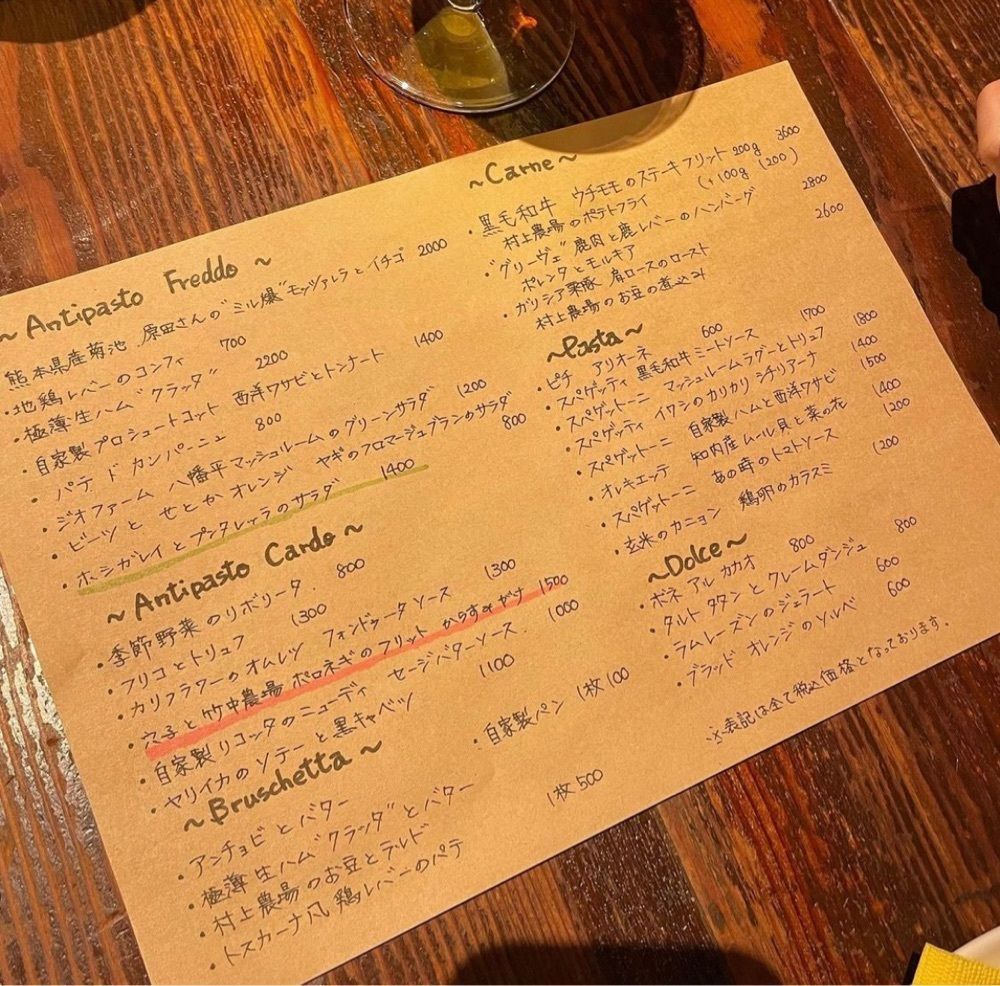 ~Antipasto Freddo~
熊本県産菊池 原田さんの"ミル爆"モッツァレラとイチゴ 2000
・地鶏レバーのコンフィ 700
・極薄生ハム"クラッタ" 2200
・自家製プロシュートコット 西洋ワサビとトンナート 1400
・パテ ド カンパーニュ 800
・ジオファーム 八幡平マッシュルームのグリーンサラダ 1200
・ビーツと せとかオレンジ ヤギのフロマージュブランのサラダ 800
・ホシガレイとプンタレッラのサラダ 1400
~Antipasto Cardo~
・季節野菜のリボリータ 800
・フリコとトリュフ 1300
・カリフラワーのオムレツ フォンドゥータソース 1300
・穴子と竹中農場 ポロネギのフリット からすみがけ 1500
・自家製リコッタのニューディ セージバターソース 1000
・ヤリイカのソテーと黒キャベツ 1100
~Bruschetta~
アンチョビとバター
・極薄生ハム"クラッタ"とバター
・村上農場のお豆とラルド
・トスカーナ風 鶏レバーのパテ
1枚500
・自家製パン 1枚100
~Carne~
・黒毛和牛 ウチモモのステーキフリット 200g 3600
村上農場のポテトフライ (+100g 1200)
・"グリーヴェ"鹿肉と鹿レバーのハンバーグ 2800
ポレンタとモルキア
・ガリシア栗豚 肩ロースのロースト 2600
村上農場のお豆の煮込み
~Pasta~
・ピチ アリオーネ 600
・スパゲッティ 黒毛和牛ミートソース 1700
・スパゲットーニ マッシュルームラグーとトリュフ 1800
・スパゲッティ イワシのカリカリ シチリアーナ 1400
・スパゲットーニ 自家製ハムと西洋ワサビ 1500
・オレキエッテ 知内産ムール貝と菜の花 1400
・スパゲットーニ あの時のトマトソース 1200
・玄米のカニョン 鶏卵のカラスミ 1200
~Dolce~
・ボネ アル カカオ 800
・タルト タタンとクレームダンジュ 800
・ラムレーズンのジェラート 600
・ブラッド オレンジのソルベ 600
※表記は全て税込価格となっております。